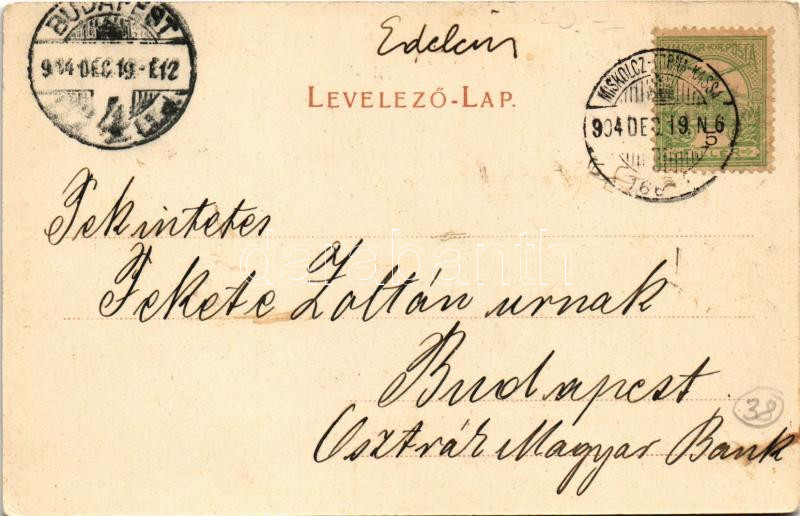 BUDAPEST
904 DEC. 19. - É12
4
Edelény
MAGYAR KIR. POSTA
MISKOLCZ-TORNA-KASSA
904 DEC. 19. N. 6
5
166
LEVELEZŐ-LAP.
Tekintetes
Fekete Zoltán urnak
Budapest
Osztrák Magyar Bank
38
darabanth